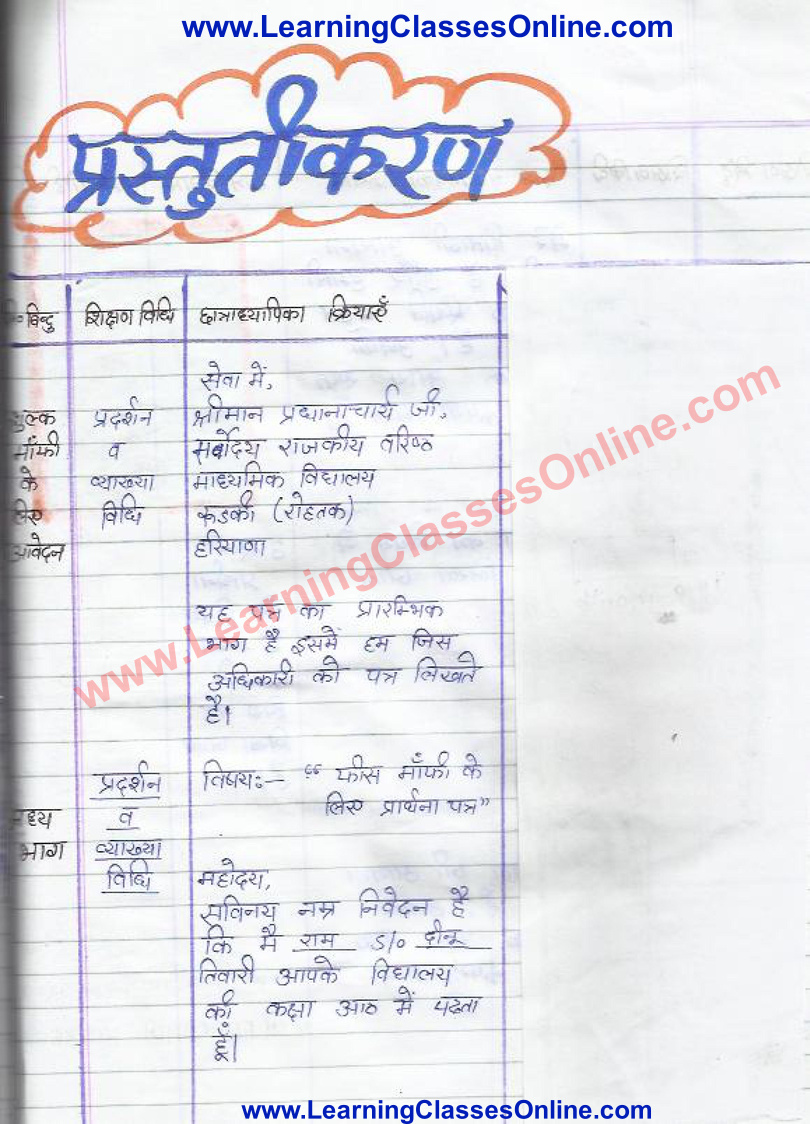 www.LearningClassesOnline.com
प्रस्तुतीकरण
बिन्दु शिक्षण विधि छात्राध्यापिका क्रियाएँ
सेवा में,
शुल्क प्रदर्शन श्रीमान प्रधानाचार्य जी,
माँफी व सर्वोदय राजकीय वरिष्ठ
के व्याख्या माध्यमिक विद्यालय
लिए विधि कडकी (रोहतक)
आवेदन हरियाणा
यह पत्र का प्रारम्भिक
भाग है इसमें हम जिस
अधिकारी को पत्र लिखते
है।
www.LearningClassesOnline.com
प्रदर्शन विषयः— “ फीस माँफी के
मध्य व लिए प्रार्थना पत्र”
भाग व्याख्या
विधि महोदय,
सविनय नम्र निवेदन है
कि मै राम S/o दीनू
तिवारी आपके विद्यालय
की कक्षा आठ में पढता
हूँ।
www.LearningClassesOnline.com